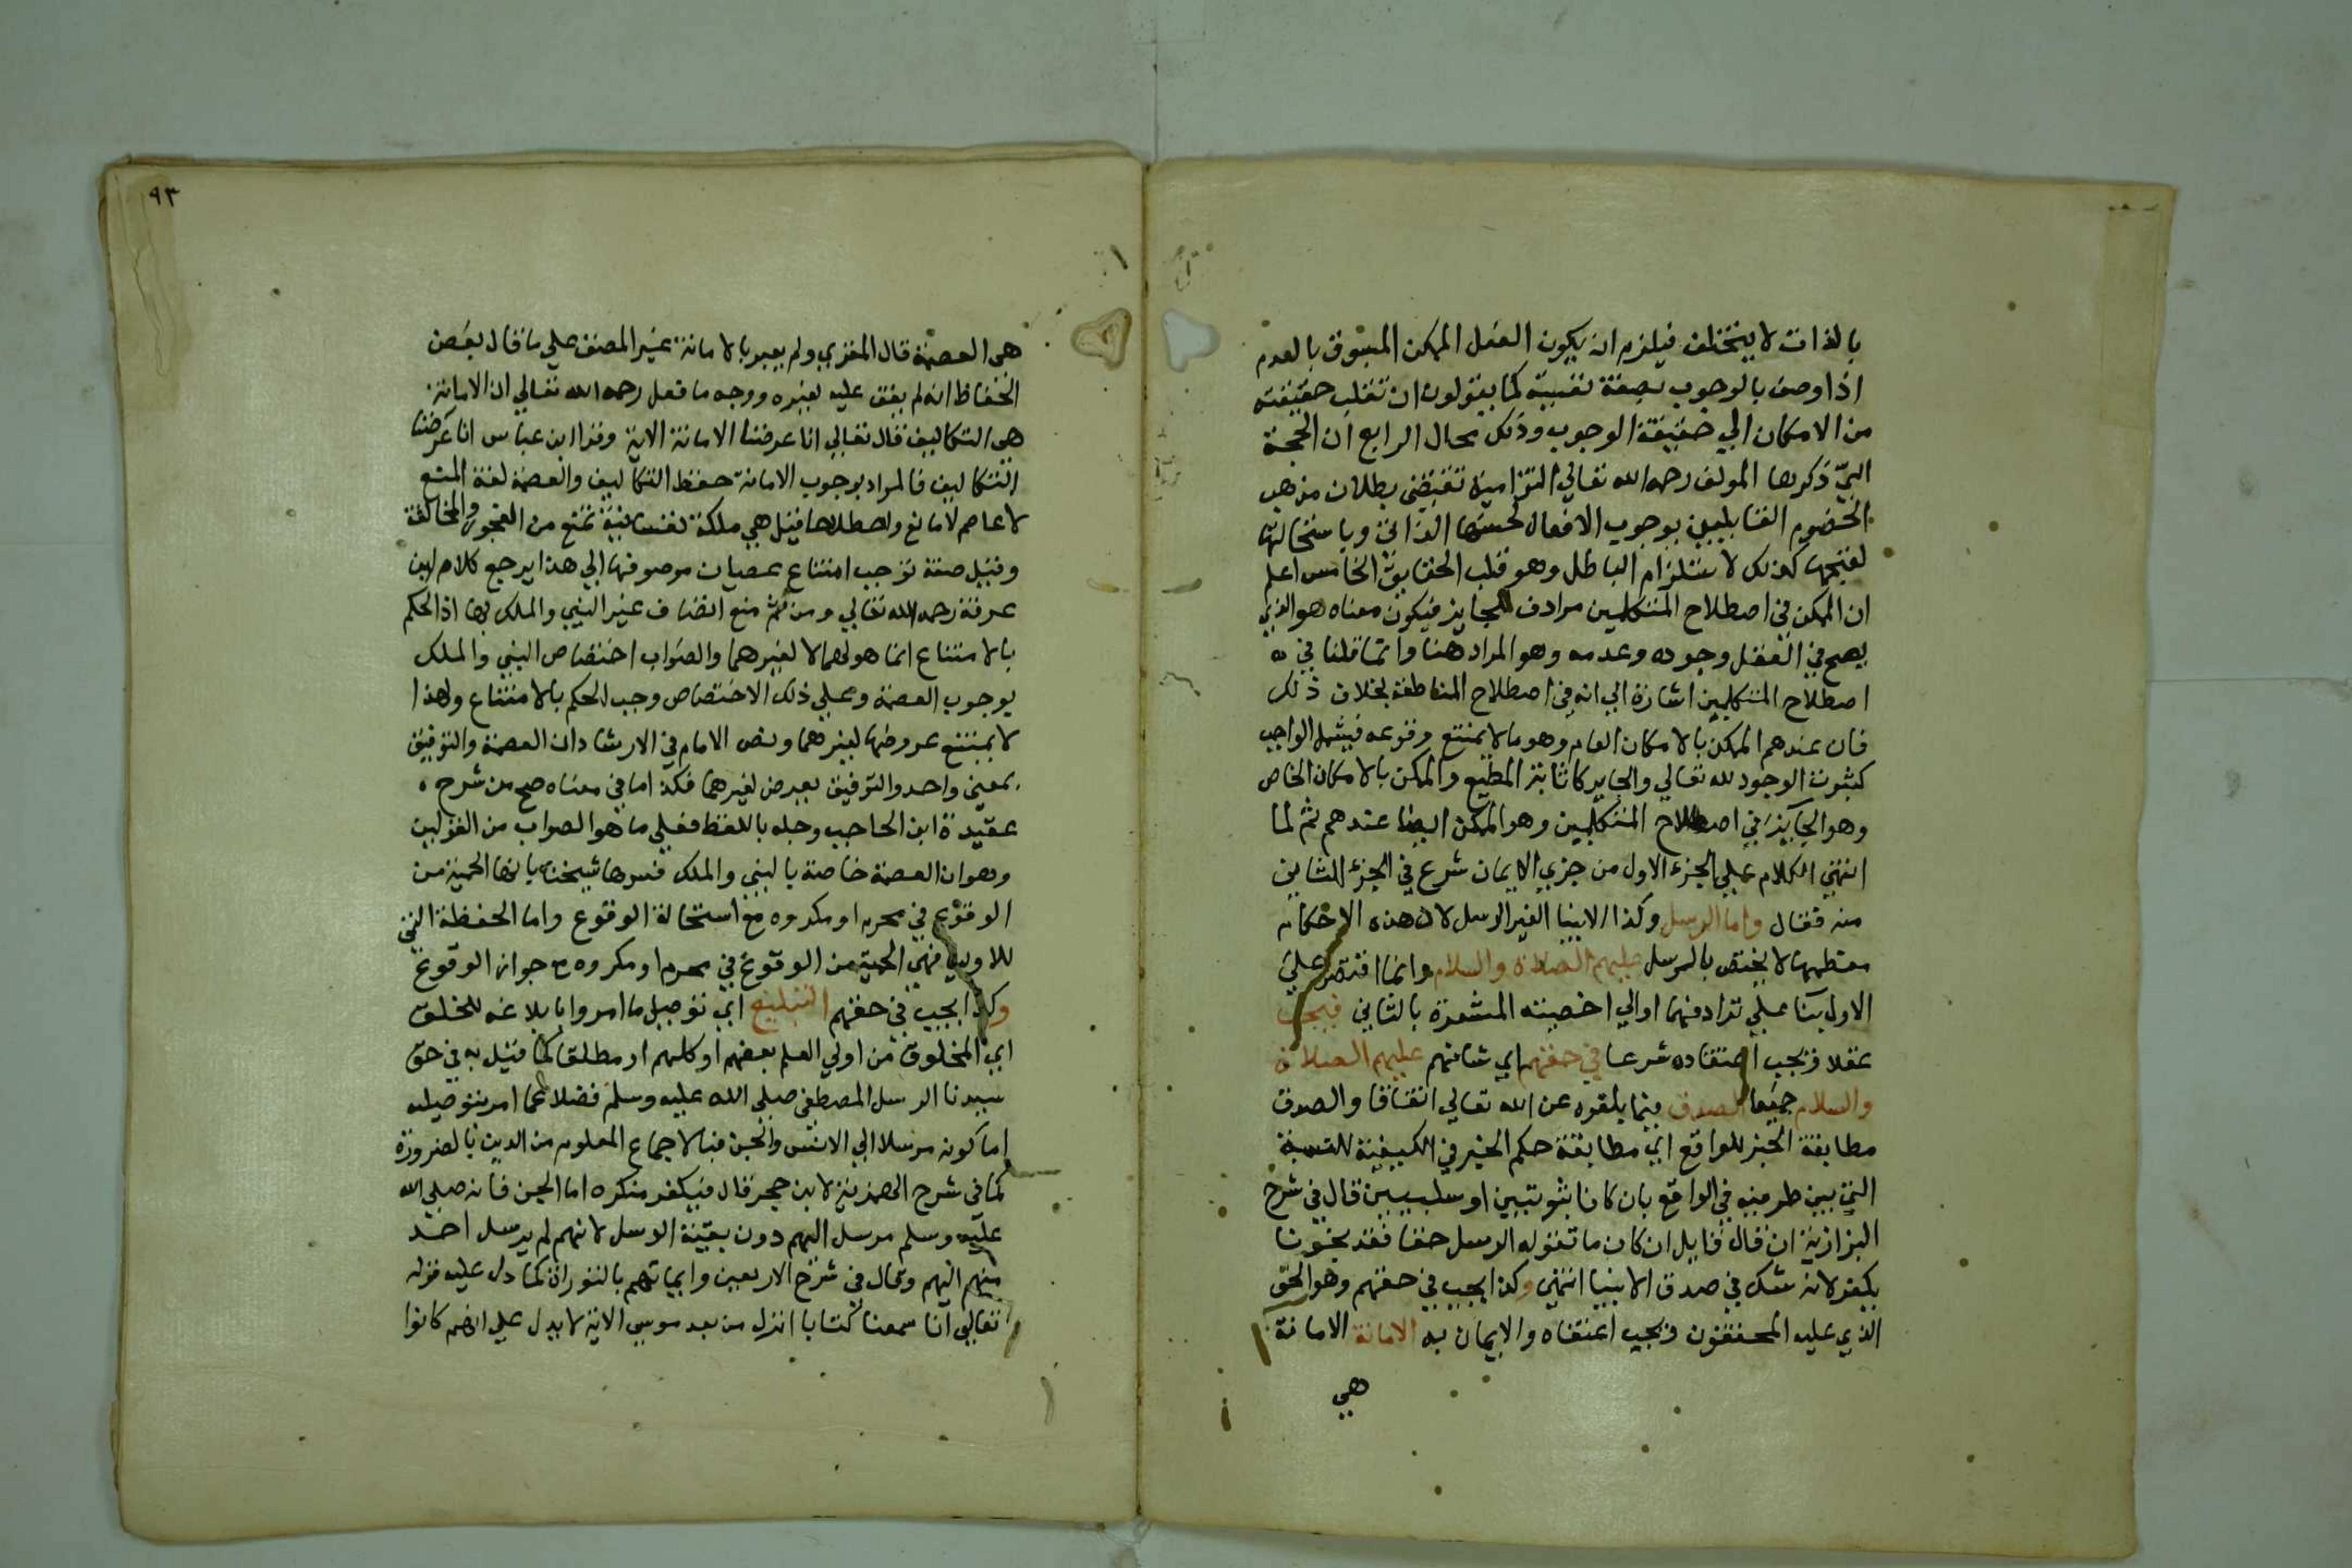 بالذات لا يتخلف فيلزم ان يكون الفعل الممكن المسبوق بالعدم
اذا وصف بالوجوب بصفة نفسية كما يقولون ان تنقلب حقيقته
من الامكان الي حقيقة الوجوب وذلك محال الرابع ان الحجة
التي ذكرها المولف رحمه الله تعالي التزامية تقتضي بطلان مذهب
الخصوم القايلين بوجوب الافعال لحسنها الذاتي وباستحالتها
لقبحها كذلك لاستلزام الباطل وهو قلب الحقايق الخامس اعلم
ان الممكن في اصطلاح المتكلمين مرادف للجايز فيكون معناه هو الذي
يصح في العقل وجوده وعدمه وهو المراد هنا وانما قلنا في
اصطلاح المتكلمين اشارة الي انه في اصطلاح المناطقة بخلاف ذلك
فان عندهم الممكن بالامكان العام وهو ما لا يمتنع وقوعه فيشمل الواجب
كثبوت الوجود لله تعالي والجايز كاثابة المطيع والممكن بالامكان الخاص
وهو الجايز في اصطلاح المتكلمين وهو الممكن ايضا عندهم ثم لما
انتهي الكلام علي الجزء الاول من جزي الايمان شرع في الجزء الثاني
منه فقال واما الرسل وكذا الانبيا الغير الرسل لان هذه الاحكام
معظمها لا يختص بالرسل عليهم الصلاة والسلام وانما اقتصر علي
الاول بنا علي ترادفهما او الي اخصيته المشعرة بالثاني فيجب
عقلا فيجب اعتقاده شرعا في حقهم اي شانهم عليهم الصلاة
والسلام جميعا الصدق فيما بلغوه عن الله تعالي اتفاقا والصدق
مطابقة الخبر للواقع اي مطابقة حكم الخبر في الكيفية للنسبة
التي بين طرفيه في الواقع بان كانا ثبوتيين او سلبيين قال في شرح
البزازية ان قال قايل ان كان ما تقوله الرسل حقا فقد نجونا
يكفر لانه شك في صدق الانبيا انتهي وكذا يجب في حقهم وهو الحق
الذي عليه المحققون فيجب اعتقاه والايمان به الامانة الامانة
هي
٩٣
هي العصمة قال المقري ولم يعبر بالامانة غير المصنف علي ما قال بعض
الحفاظ انه لم يقف عليه لغيره ووجه ما فعل رحمه الله تعالي ان الامانة
هي التكاليف قال تعالي انا عرضنا الامانة الاية وقرا ابن عباس انا عرضنا
التكاليف فالمراد بوجوب الامانة حفظ التكاليف والعصمة لغة المنع
لا عاصم لا مانع واصطلاحا قيل هي ملكة نفسانية تمنع من الفجور والمخالفة
وقيل صفة توجب امتناع عصيان موصوفها الي هذا يرجع كلام ابن
عرفة رحمه الله تعالي ومن ثم منع اتصاف غير النبي والملك بها اذ الحكم
بالامتناع انما هو لهما لا لغيرهما والصواب اختصاص النبي والملك
بوجوب العصمة وعلي ذلك الاختصاص وجب الحكم بالامتناع ولهذا
لا يمتنع عروضها لغيرهما ونص الامام في الارشاد ان العصمة والتوفيق
بمعني واحد والتوفيق يعرض لغيرهما فكذا ما في معناه صح من شرح
عقيدة ابن الحاجب وجله باللفظ فعلي ما هو الصواب من القولين
وهو ان العصمة خاصة بالنبي والملك فسرها شيخنا بانها الحمية من
الوقوع في محرم او مكروه مع استحالة الوقوع واما الحفظة التي
للاوليا فهي الحمية من الوقوع في محرم او مكروه مع جواز الوقوع
وكذا يجب في حقهم التبليغ اي توصيل ما امروا بابلاغه للخلق
اي المخلوق من اولي العلم بعضهم او كلهم او مطلقا كما قيل به في حق
سيدنا الرسل المصطفي صلي الله عليه وسلم فضلا عما امر بتوصيله
اما كونه مرسلا الي الانس والجن فبالاجماع المعلوم من الدين بالضرورة
كما في شرح الهمزية لابن حجر قال فيكفر منكره اما الجن فانه صلي الله
عليه وسلم مرسل اليهم دون بقية الرسل لانهم لم يرسل احد
منهم اليهم وقال في شرح الاربعين وايمانهم بالتوراة كما دل عليه قوله
تعالي انا سمعنا كتابا انزل من بعد موسي الاية لا يدل علي انهم كانوا